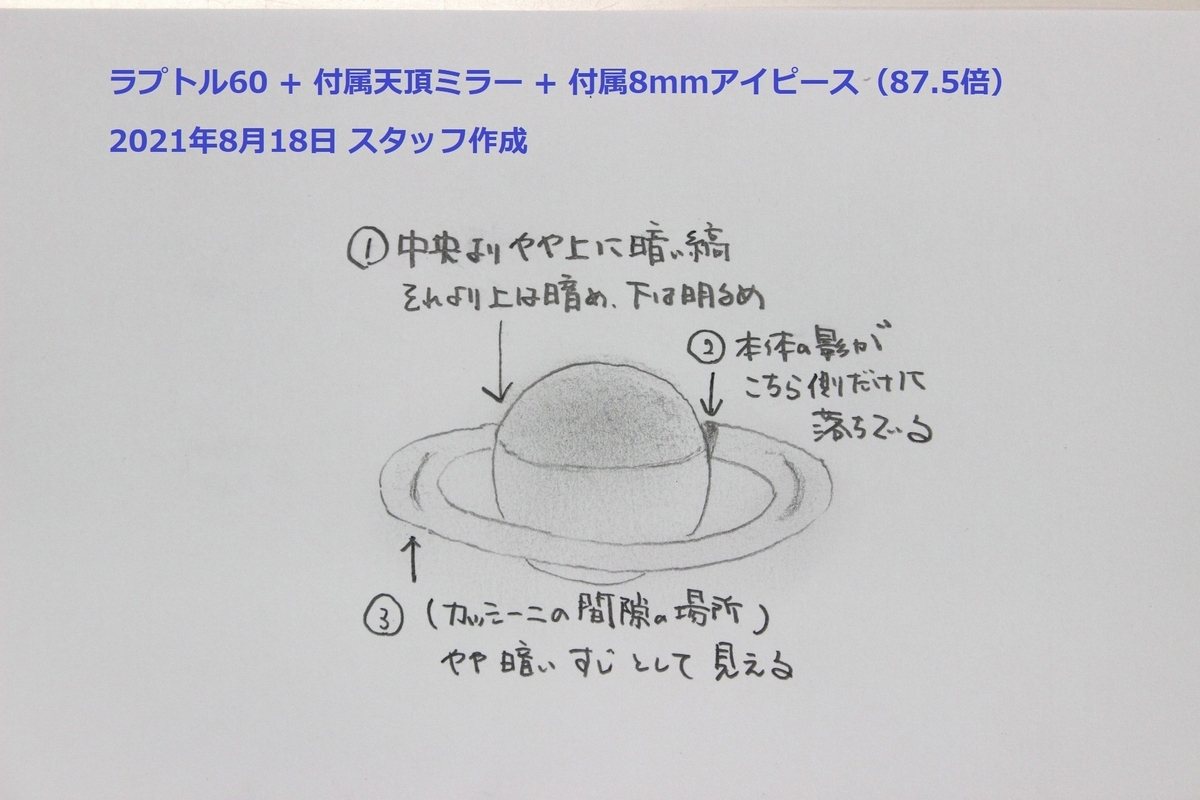 ラプトル60 + 付属天頂ミラー + 付属8mmアイピース（87.5倍）
2021年8月18日 スタッフ作成
① 中央よりやや上に暗い縞
それより上は暗め、下は明るめ
② 本体の影が
こちら側だけに
落ちている
③ (カッシーニの間隙の場所)
やや暗いすじとして見える